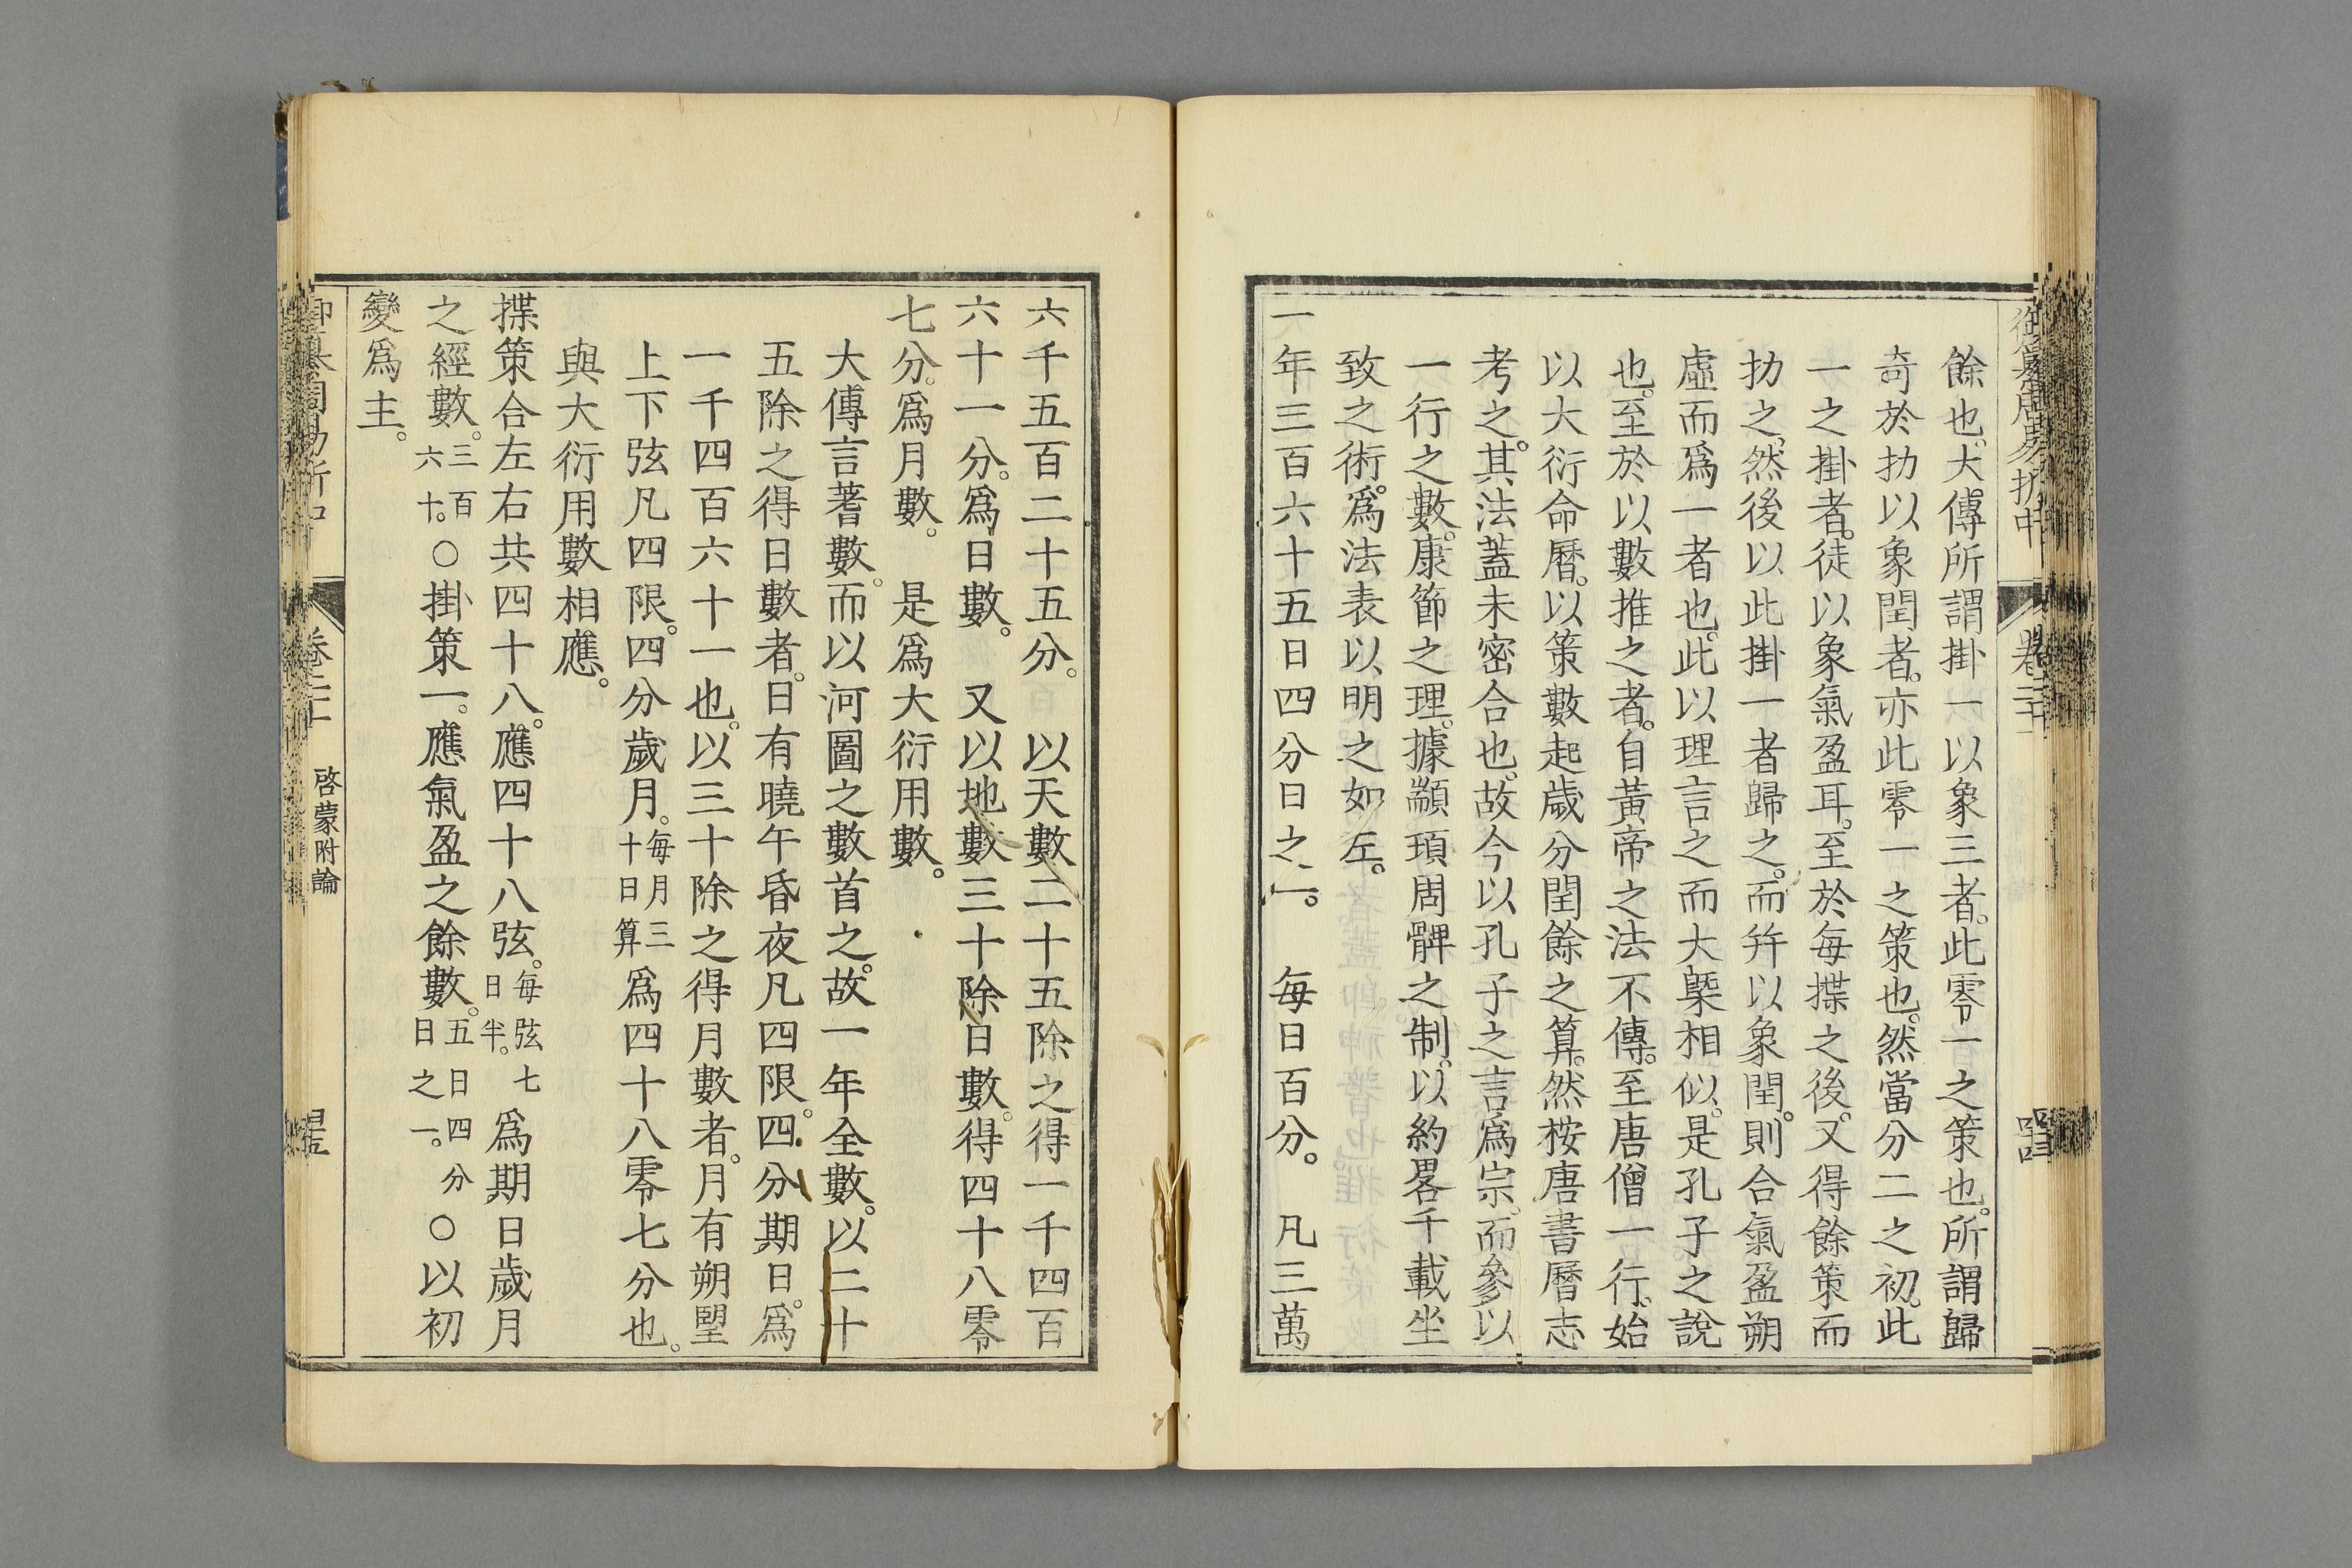 餘也。大傳所謂掛一以象三者。此零一之策也。所謂歸
奇於扐以象閏者。亦此零一之策也。然當分二之初。此
一之掛者。徒以象氣盈耳。至於每揲之後。又得餘策而
扐之。然後以此掛一者歸之。而幷以象閏。則合氣盈朔
虛而爲一者也。此以理言之而大槩相似。是孔子之說
也。至於以數推之者。自黃帝之法不傳。至唐僧一行。始
以大衍命曆。以策數起歲分閏餘之算。然按唐書曆志
考之。其法蓋未密合也。故今以孔子之言爲宗。而參以
一行之數。康節之理。據顓頊周髀之制。以約畧千載坐
致之術。爲法表以明之如左。
一年三百六十五日四分日之一。　每日百分。　凡三萬
六千五百二十五分。　以天數二十五除之得一千四百
六十一分。爲日數。　又以地數三十除日數。得四十八零
七分。爲月數。　是爲大衍用數。
大傳言蓍數。而以河圖之數首之。故一年全數。以二十
五除之得日數者。日有曉午昏夜凡四限。四分期日。爲
一千四百六十一也。以三十除之得月數者。月有朔望
上下弦凡四限。四分歲月。每月三十日算爲四十八零七分也。
與大衍用數相應。
揲策合左右共四十八。應四十八弦。每弦七日半。爲期日歲月
之經數。三百六十。○掛策一。應氣盈之餘數。五日四分日之一。○以初
變爲主。
卷二十
啓蒙附論